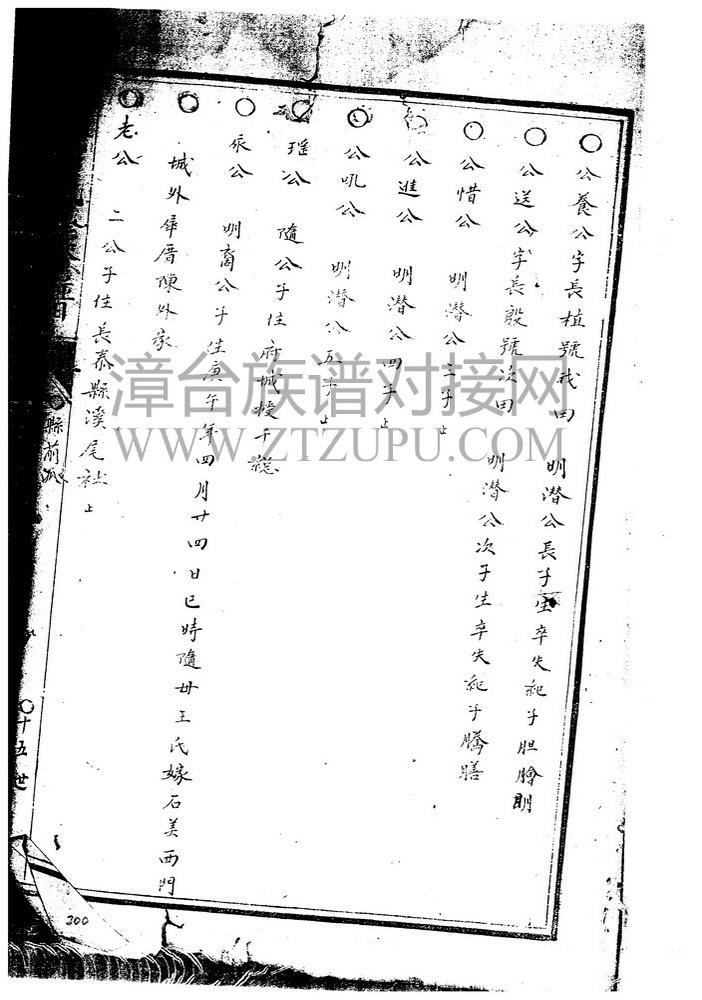 公養公字長植號我田 明潜公長子生卒失紀子胆膾明
公送公字長殷號次田 明潜公次子生卒失紀子騰膳
公惜公 明潜公三子
公進公 明潜公四子
公吼公 明潜公五子
瑶公 隨公子住府城授千總
依公 明裔公子生庚午年四月廿四日巳時隨母王氏嫁石美西門
城外 厝陳外家
老公 二公子住長泰縣溪尾社
縣前派
十五世
200
漳台族谱对接网
WWW.ZTZUPU.COM